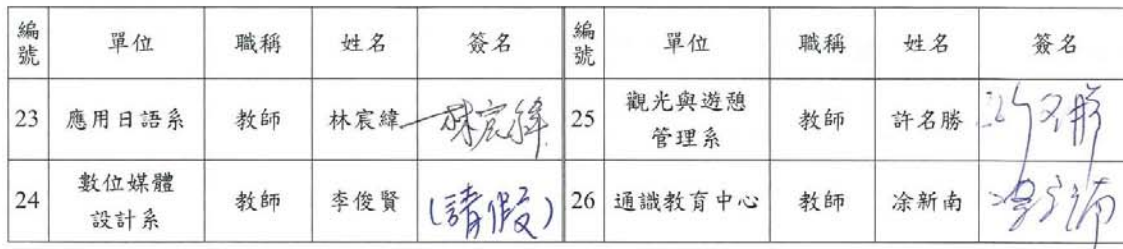 編號 單位 職稱 姓名 簽名 編號 單位 職稱 姓名 簽名
23 應用日語系 教師 林宸緯 林宸緯 25 觀光與遊憩管理系 教師 許名勝 許名勝
24 數位媒體設計系 教師 李俊賢 (請假) 26 通識教育中心 教師 涂新南